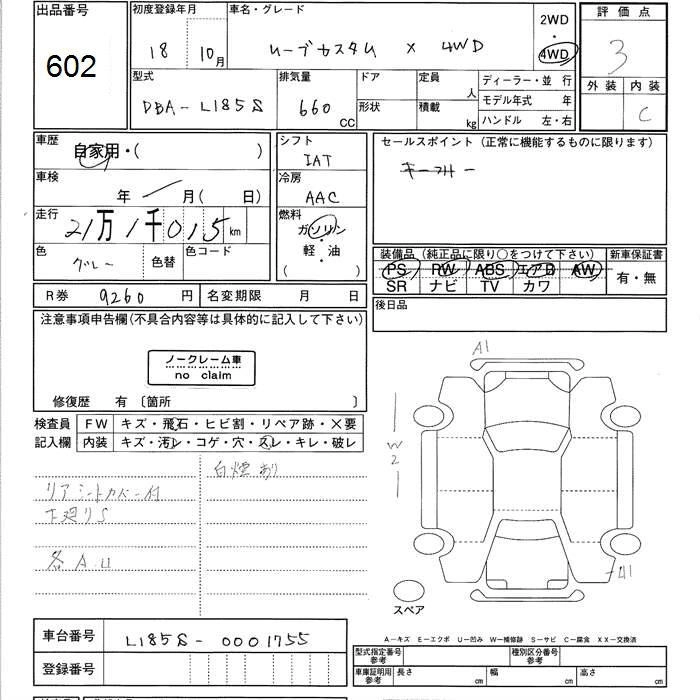 出品番号
602
初度登録年月
18 10月
車名・グレード
ムーブカスタム X 4WD
2WD
・
4WD
評価点
3
外装 内装
C
型式
DBA-L185S
排気量
660 CC
ドア
形状
定員
人
積載
kg
ディーラー・並 行
モデル年式 年
ハンドル 左・右
車歴
自家用・( )
車検
年 / 月( 日)
走行
21万1千015km
色
グレー
色替
色コード
シフト
IAT
冷房
AAC
燃料
ガソリン
・
軽・油
( )
セールスポイント(正常に機能するものに限ります)
キーフリー
装備品(純正品に限り○をつけて下さい)
PS PW ABS エアB AW
SR ナビ TV カワ
新車保証書
有・無
後日品
R券 9260 円
名変期限 月 日
注意事項申告欄(不具合内容等は具体的に記入して下さい)
ノークレーム車
no claim
修復歴 有〔箇所 〕
検査員
記入欄
FW キズ・飛石・ヒビ割・リペア跡・×要
内装 キズ・汚レ・コゲ・穴・スレ・キレ・破レ
白煙あり
リアシートカバー付
下廻りS
各A.U
A1
W2
スペア
A－キズ E－エクボ U－凹み W－補修跡 S－サビ C－腐食 XX－交換済
車台番号
L185S-0001755
登録番号
型式指定番号
参考
種別区分番号
参考
車庫証明用
参考
長さ cm
幅 cm
高さ cm